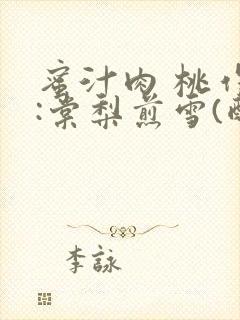 蜜汁肉桃作
:棠梨煎雪(
李詠